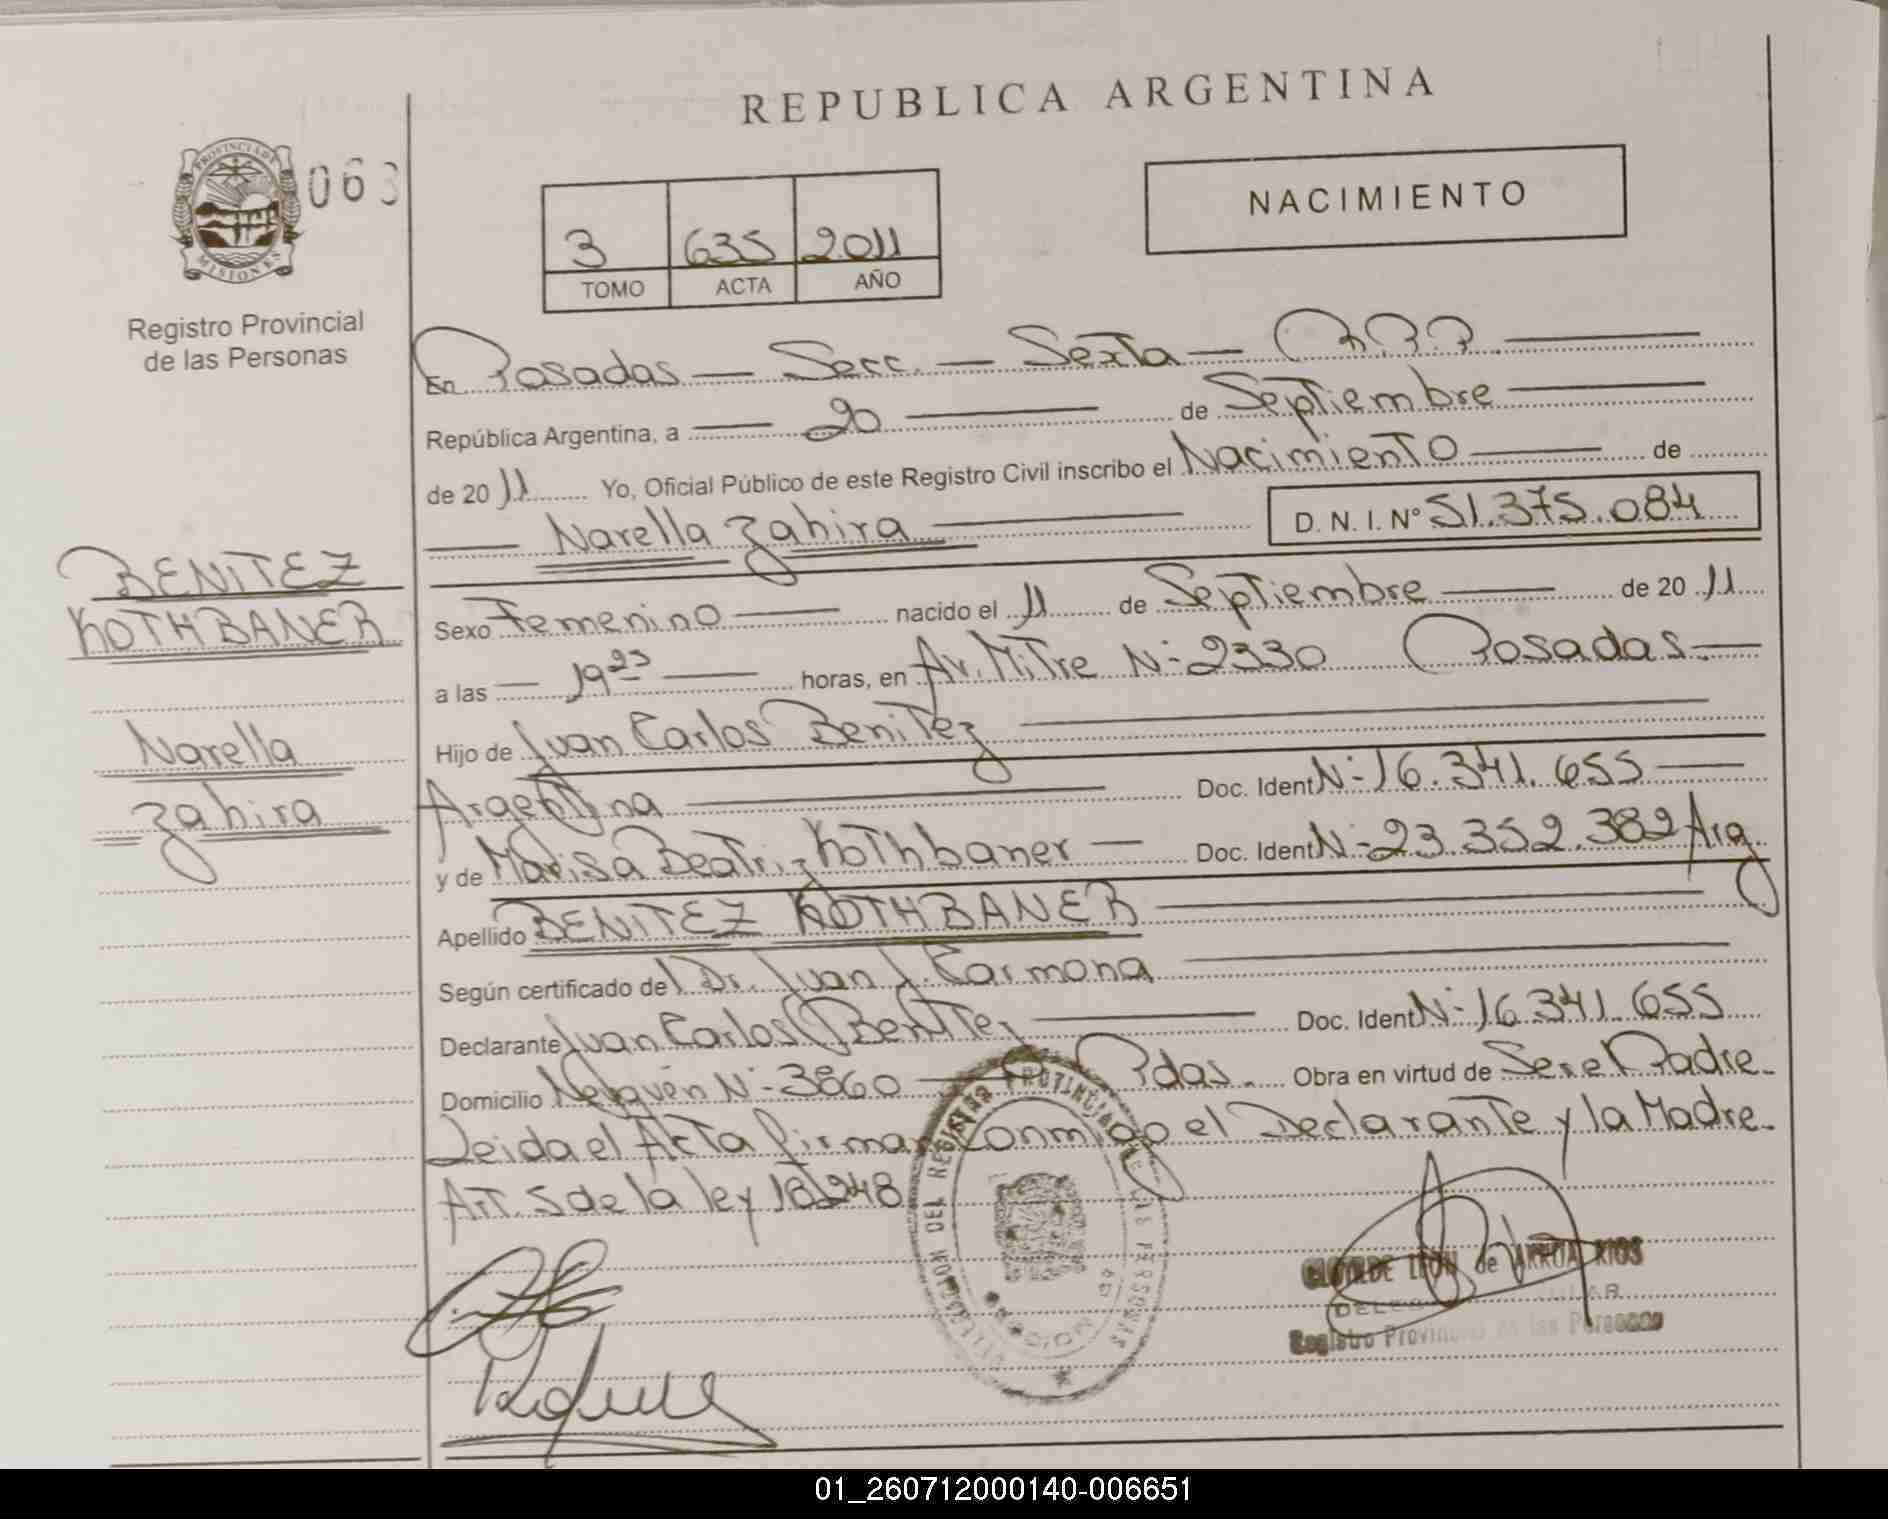 REPUBLICA ARGENTINA
PROVINCIA DE
MISIONES
063
Registro Provincial
de las Personas
3 635 2011
TOMO ACTA AÑO
NACIMIENTO
En Posadas — Secc. — Sexta —
República Argentina, a — 20 — de Septiembre —
de 2011 Yo, Oficial Público de este Registro Civil inscribo el Nacimiento — de
— Narella Zahira — D. N. I. Nº 51.375.084
BENITEZ
KOTHBANER
Narella
Zahira
Sexo Femenino — nacido el 11 de Septiembre — de 2011
a las — 19 25 — horas, en Av. Mitre N: 2330 Posadas. —
Hijo de Juan Carlos Benitez —
Argentina — Doc. Ident N: 16.341.655 —
y de Marisa Beatriz Kothbaner — Doc. Ident N: 23.352.382 Arg
Apellido BENITEZ KOTHBANER —
Según certificado del Dr. Juan J. Carmona —
Declarante Juan Carlos Benitez — Doc. Ident N: 16.341.655
Domicilio Neuquén N: 3860 — Pdas. Obra en virtud de Ser el Padre.
Leida el Acta firman conmigo el Declarante y la Madre.
Art. 5 de la ley 18248
CLOTILDE LEON de ARRUA RIOS
Registro Provincial de las Personas
01_260712000140-006651